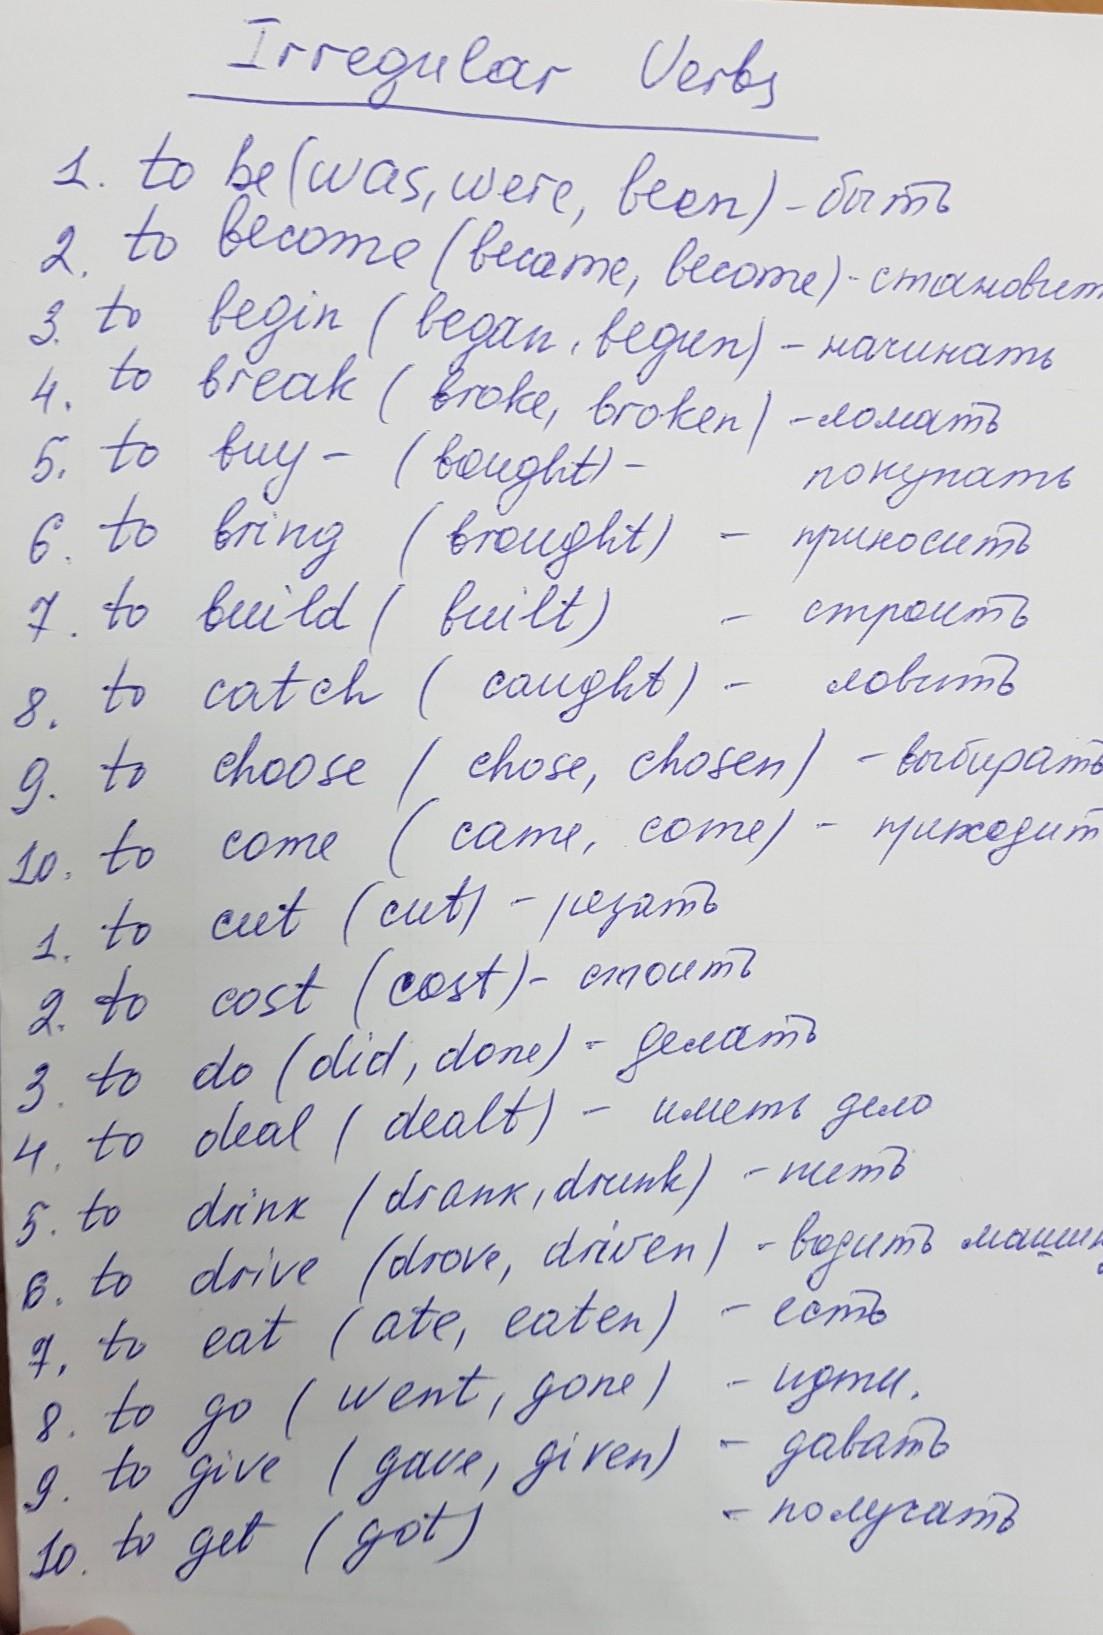 Irregular Verbs
1. to be (was, were, been) - быть
2. to become (became, become) - становит
3. to begin (began, begun) - начинать
4. to break (broke, broken) - ломать
5. to buy - (bought) - покупать
6. to bring (brought) - приносить
7. to build (built) - строить
8. to catch (caught) - ловить
9. to choose (chose, chosen) - выбирать
10. to come (came, come) - приходит
1. to cut (cut) - резать
2. to cost (cost) - стоить
3. to do (did, done) - делать
4. to deal (dealt) - иметь дело
5. to drink (drank, drunk) - пить
6. to drive (drove, driven) - водить машин
7. to eat (ate, eaten) - есть
8. to go (went, gone) - идти.
9. to give (gave, given) - давать
10. to get (got) - получать